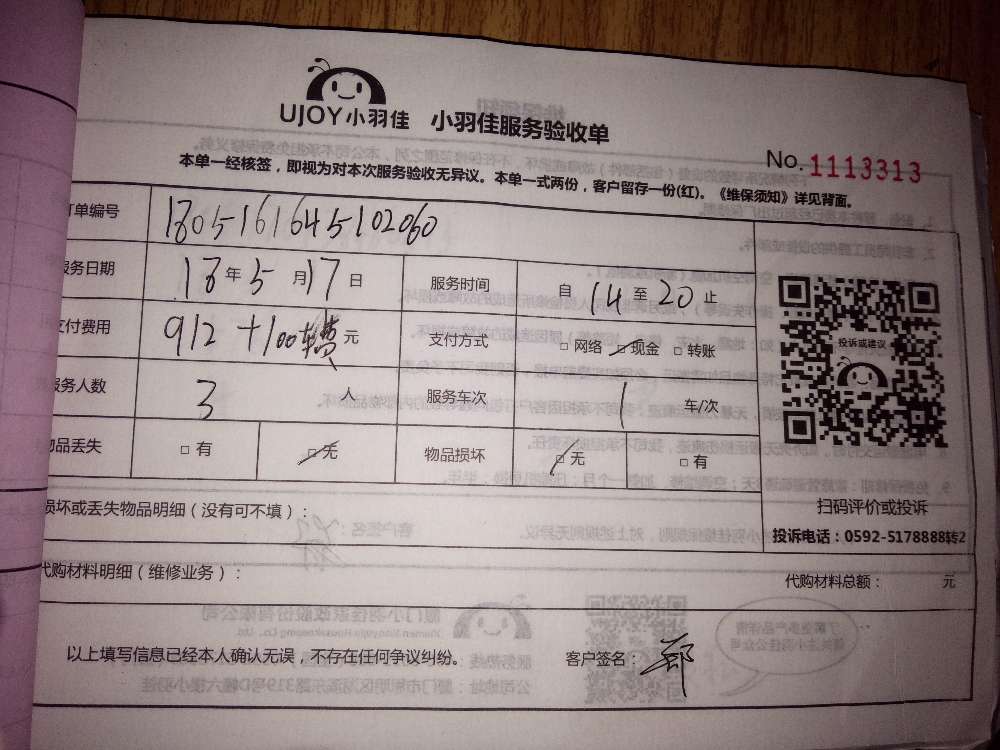 UJOY小羽佳 小羽佳服务验收单
No. 1113313
本单一经核签，即视为对本次服务验收无异议。本单一式两份，客户留存一份(红)。《维保须知》详见背面。
订单编号 1805161645102060
服务日期 18年5月17日 服务时间 自14至20止
支付费用 912+100车费元 支付方式 □网络 □现金 □转账
服务人数 3人 服务车次 1车/次
物品丢失 □有 □无 物品损坏 □无 □有
投诉或建议
扫码评价或投诉
投诉电话：0592-5178888转2
损坏或丢失物品明细（没有可不填）：
代购材料明细（维修业务）： 代购材料总额： 元
以上填写信息已经本人确认无误，不存在任何争议纠纷。 客户签名：郑